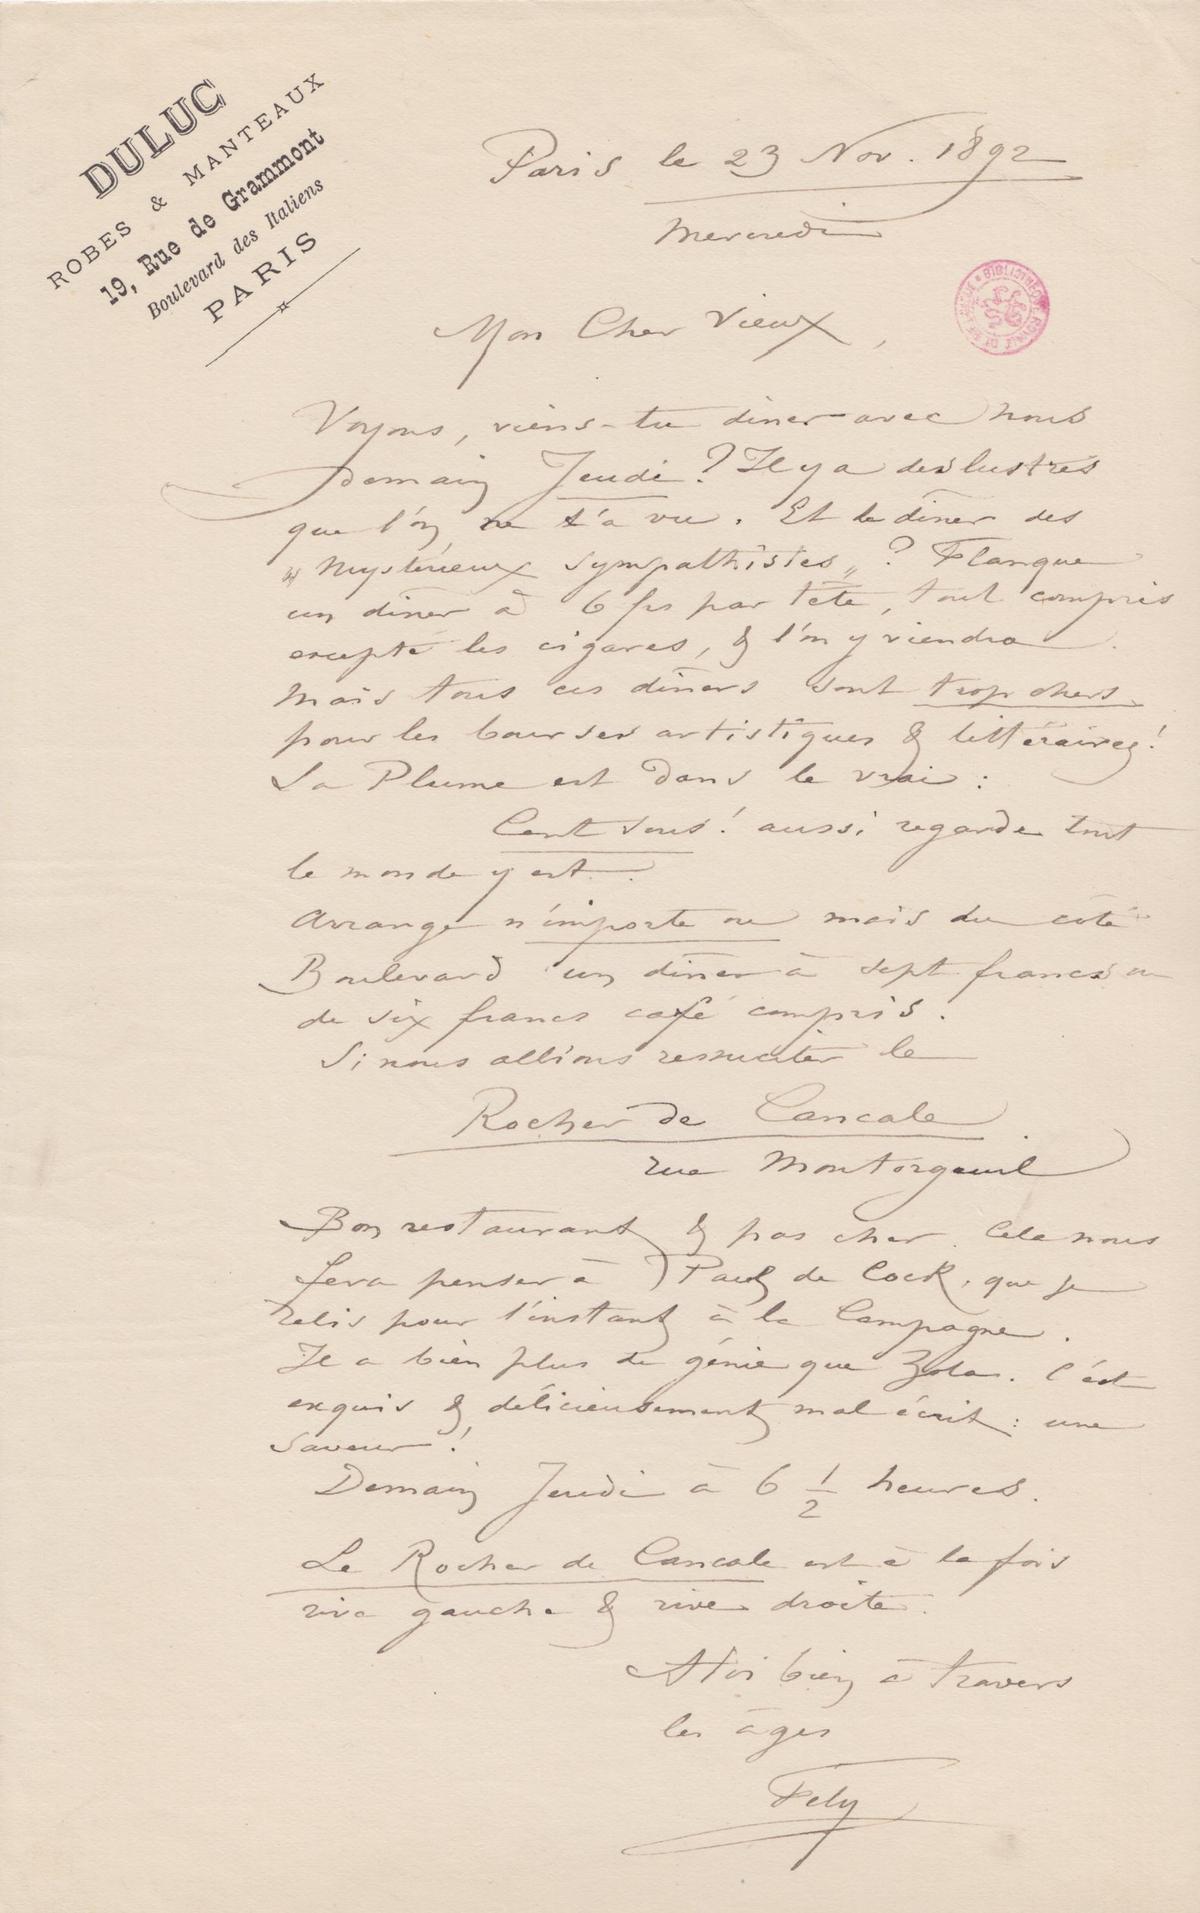 DULUC
ROBES & MANTEAUX
19, Rue de Grammont
Boulevard des Italiens
PARIS
Paris le 23 Nov. 1892
Mercredi
BIBLIOTHÈQUE ROYALE DE BELGIQUE
Mon Cher Vieux,
Voyons, viens-tu diner avec nous
Demain Jeudi ? Il y a des lustres
que l'on ne t'a vu. Et le dîner des
« Mystérieux Sympathistes » ? Flanque
un dîner à 6 frs par tête, tout compris
excepté les cigares, & l'on y viendra.
Mais tous ces dîners sont trop chers
pour les bourses artistiques & littéraires !
La Plume est dans le vrai :
Cent sous ! aussi regarde tout
le monde y est.
Arrange n'importe ou mais du côté
Boulevard un dîner à sept francs ou
de six francs café compris.
Si nous allions ressuciter le
Rocher de Cancale
rue Montorgeuil
Bon restaurant & pas cher. Cela nous
fera penser à Paul de Cock, que je
relis pour l'instant à la Campagne.
Il a bien plus de génie que Zola. C'est
exquis & délicieusement mal écrit : une
saveur !
Demain Jeudi à 6 1/2 heures.
Le Rocher de Cancale est à la fois
rive gauche & rive droite.
A toi bien à travers
les âges
Fély